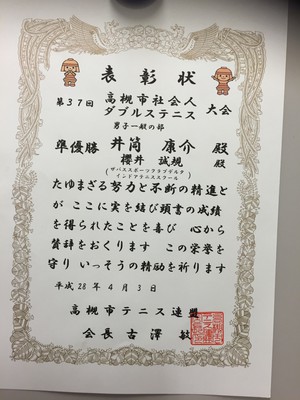 表彰状
第37回 高槻市社会人 大会
ダブルステニス
男子一般の部
準優勝 井筒 康介 殿
櫻井 誠規 殿
(ザバススポーツクラブデルタ
インドアテニススクール)
たゆまざる努力と不断の精進と
が ここに実を結び頭書の成績
を得られたことを喜び 心から
賛辞をおくります この栄誉を
守り いっそうの精励を祈ります
平成 28 年 4 月 3 日
高槻市テニス連盟
会長 古澤 敏